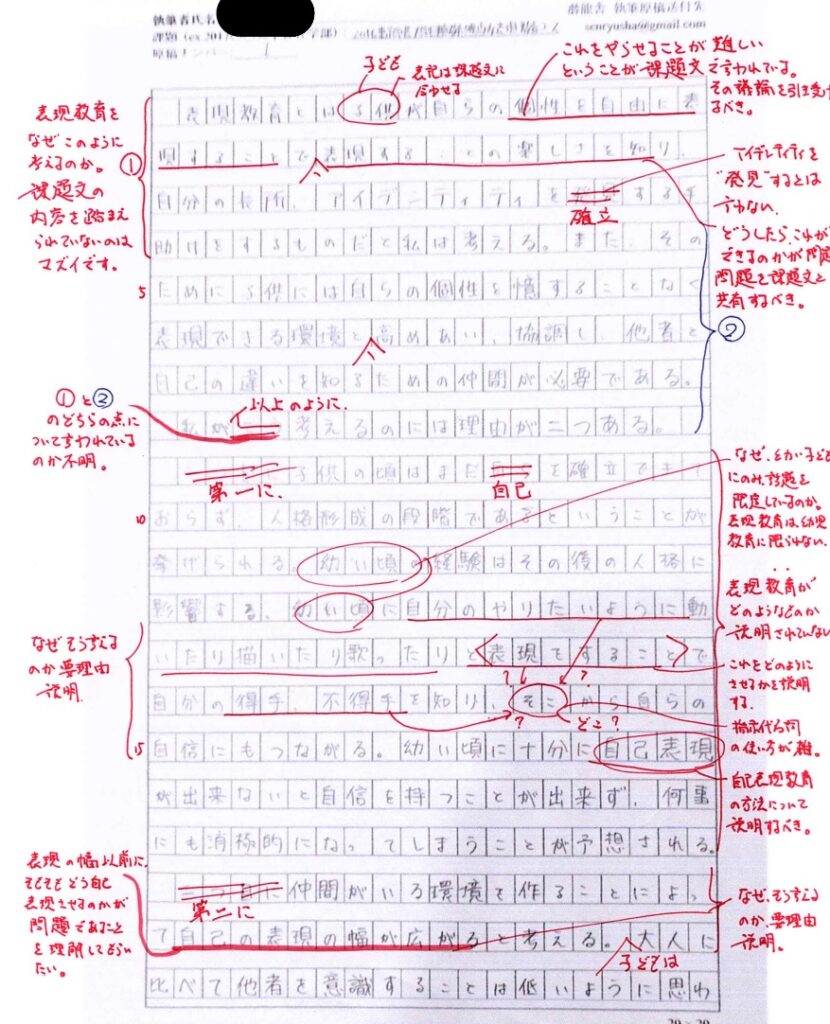 執筆者氏名
潜龍舎 執筆原稿送付先
senryusha@gmail.com
原稿ナンバー 1
表現教育とは子供が自らの個性を自由に表
現することで表現することの楽しさを知り、
自分の長所、アイデンティティを する手
助けをするものだと私は考える。また、その
ために子供には自らの個性を憶することなく
表現できる環境と高めあい、協調し、他者と
自己の違いを知るための仲間が必要である。
私が 考えるのには理由が二つある。
子供の頃はまだ を確立でき
おらず、人格形成の段階であるということが
挙げられる。幼い頃の経験はその後の人格に
影響する。幼い頃に自分のやりたいように動
いたり描いたり歌ったりと表現をすることで
自分の得手、不得手を知り、そこから自らの
自信にもつながる。幼い頃に十分に自己表現
が出来ないと自信を持つことが出来ず、何事
にも消極的になってしまうことが予想される。
二つ目に仲間がいる環境を作ることによっ
て自己の表現の幅が広がると考える。大人に
比べて他者を意識することは低いように思わ
5
10
15
20×20
表現教育を
なぜこのように
考えるのか。
課題文の
内容を踏まえ
られていないのは
マズイです。
①
子ども
表記は課題文に
合わせる
これをやらせることが難しい
ということが課題文で言われている。
その議論を引き受け
るべき。
アイデンティティを
"発見"するとは
言わない。
確立
どうしたら、これが
できるのかが問題
問題を課題文と
共有するべき。
②
①と②
のどちらの点に
ついて言われている
のか不明。
以上のように、
第一に、
自己
なぜ、幼い子ども
にのみ話題を
限定しているのか。
表現教育は幼児
教育に限られない。
表現教育が
どのようなものか
説明されていない
なぜそう言える
のか要理由
説明。
これをどのように
させるかを説明
する。
? ?
? どこ?
指示代名詞
の使い方が雑。
自己表現教育
の方法について
説明するべき。
表現の幅以前に、
そもそもどう自己
表現させるのかが
問題であること
を理解してもらい
たい。
第二に
なぜ、そう言える
のか、要理由
説明。
子どもは